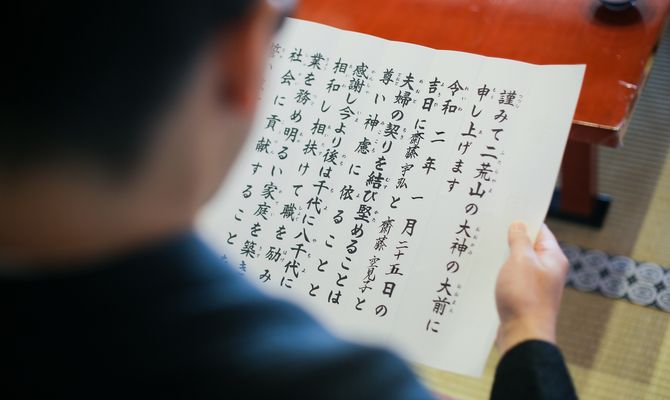 謹みて二荒山の大神の大前に
申し上げます
令和二年一月二十五日の
吉日に齋藤宇弘と齋藤空見子と
夫婦の契りを結び堅めることは
尊い神慮に依ることと
感謝し今より後は千代に八千代に
相和し相扶けて職を励み
業を務め明るい家庭を築き
社会に貢献することを